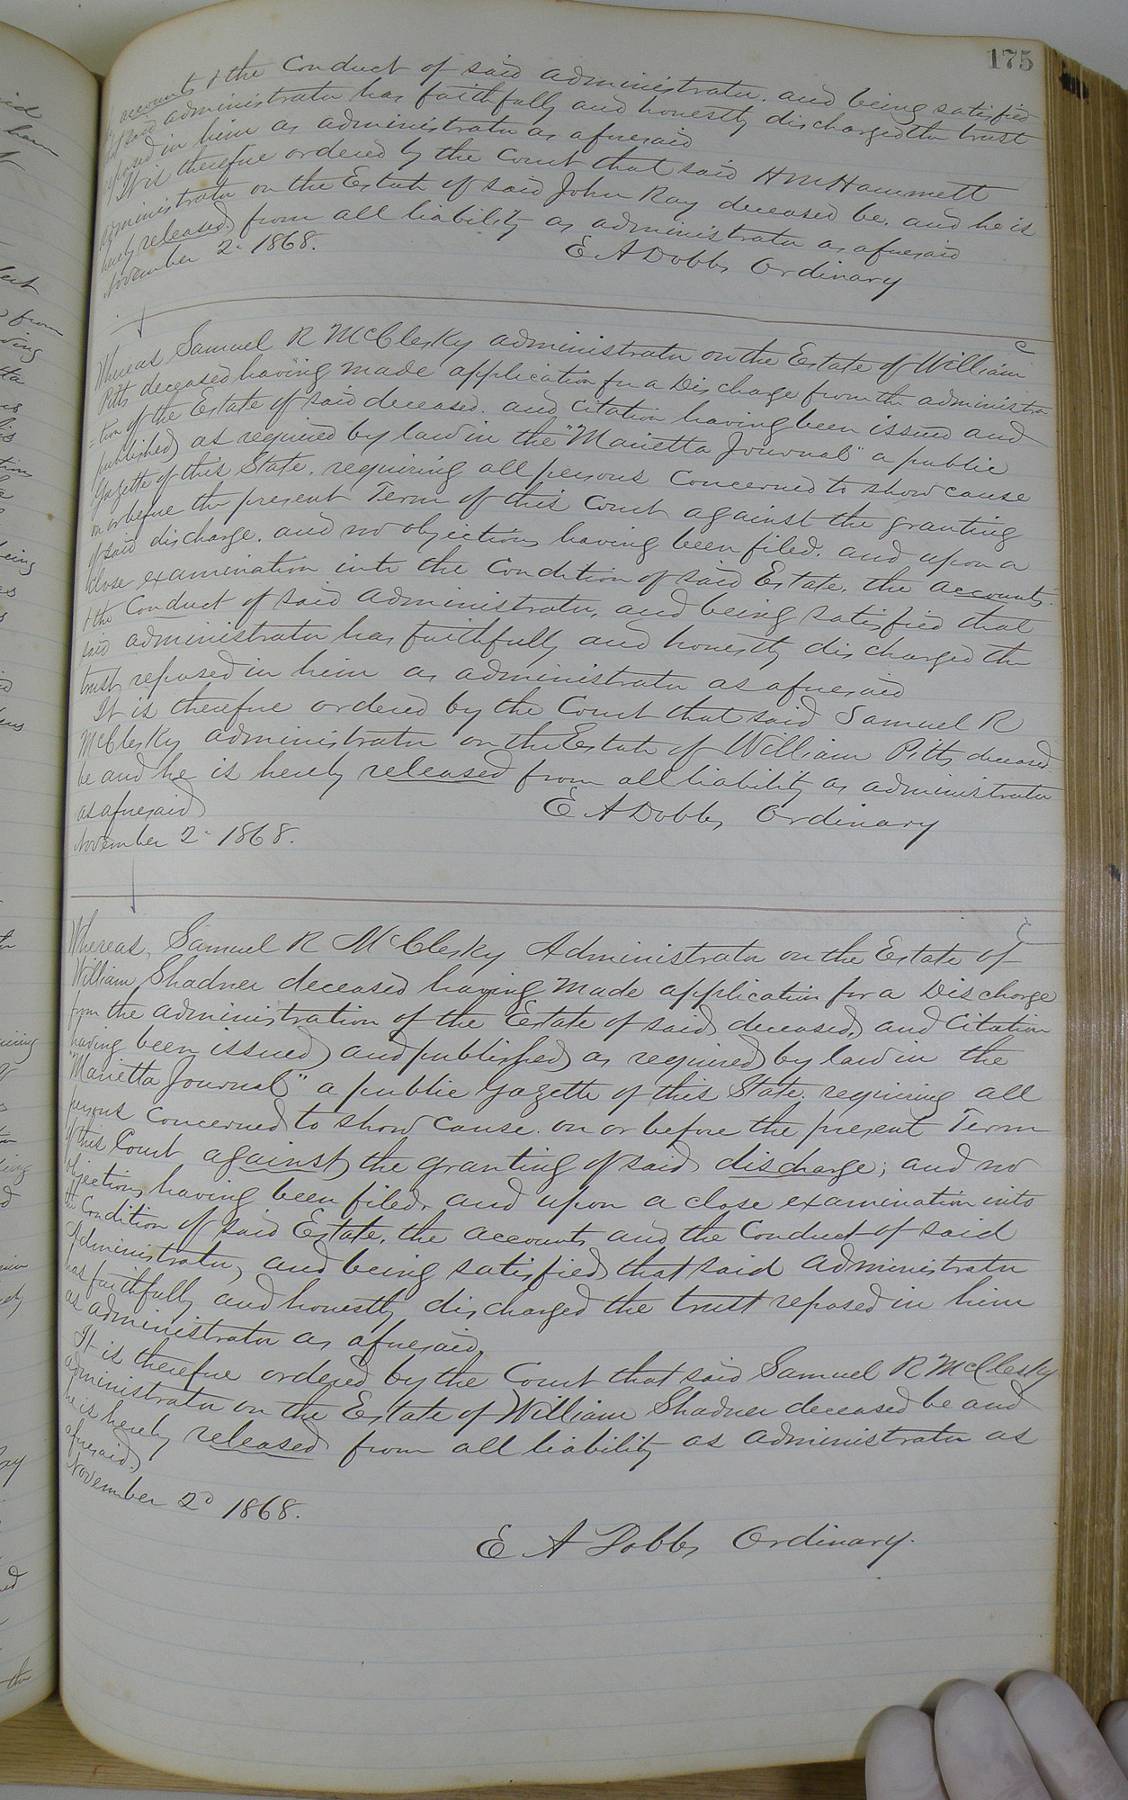 175
accounts & the Conduct of said administrator. and being satisfied
that said administrator has faithfully and honestly discharged the trust
reposed in him as administrator as aforesaid
It is therefore ordered by the Court that said H M Hammett
administrator on the Estate of said John Ray deceased be, and he is
hereby released from all liability as administrator as aforesaid
November 2d 1868.
E A Dobbs Ordinary
Whereas Samuel R McClesky administrator on the Estate of William
Pitts deceased having made application for a Discharge from the administra
=tion of the Estate of said deceased. and Citation having been issued and
published as required by law in the "Marietta Journal" a public
Gazette of this State. requiring all persons Concerned to show cause
on or before the present Term of this Court against the granting
of said discharge. and no objections having been filed. and upon a
close examination into the Condition of said Estate, the accounts
& the Conduct of said administrator, and being satisfied that
said administrator has faithfully and honestly discharged the
trust reposed in him as administrator as aforesaid
It is therefore ordered by the Court that said Samuel R
McClesky administrator on the Estate of William Pitts deceased
be and he is hereby released from all liability as administrator
as aforesaid
E A Dobbs Ordinary
November 2d 1868.
Whereas, Samuel R McClesky Administrator on the Estate of
William Shadner deceased having made application for a Discharge
from the administration of the Estate of said deceased, and Citation
having been issued and published as required by law in the
"Marietta Journal" a public Gazette of this State, requiring all
persons Concerned to show cause on or before the present Term
of this Court against the granting of said discharge; and no
objections having been filed, and upon a close examination into
the Condition of said Estate, the accounts and the Conduct of said
Administrator, and being satisfied that said administrator
has faithfully and honestly discharged the trust reposed in him
as administrator as aforesaid
It is therefore ordered by the Court that said Samuel R McClesky
administrator on the Estate of William Shadner deceased be and
he is hereby released from all liability as administrator as
aforesaid.
November 2d 1868.
E A Dobbs Ordinary.